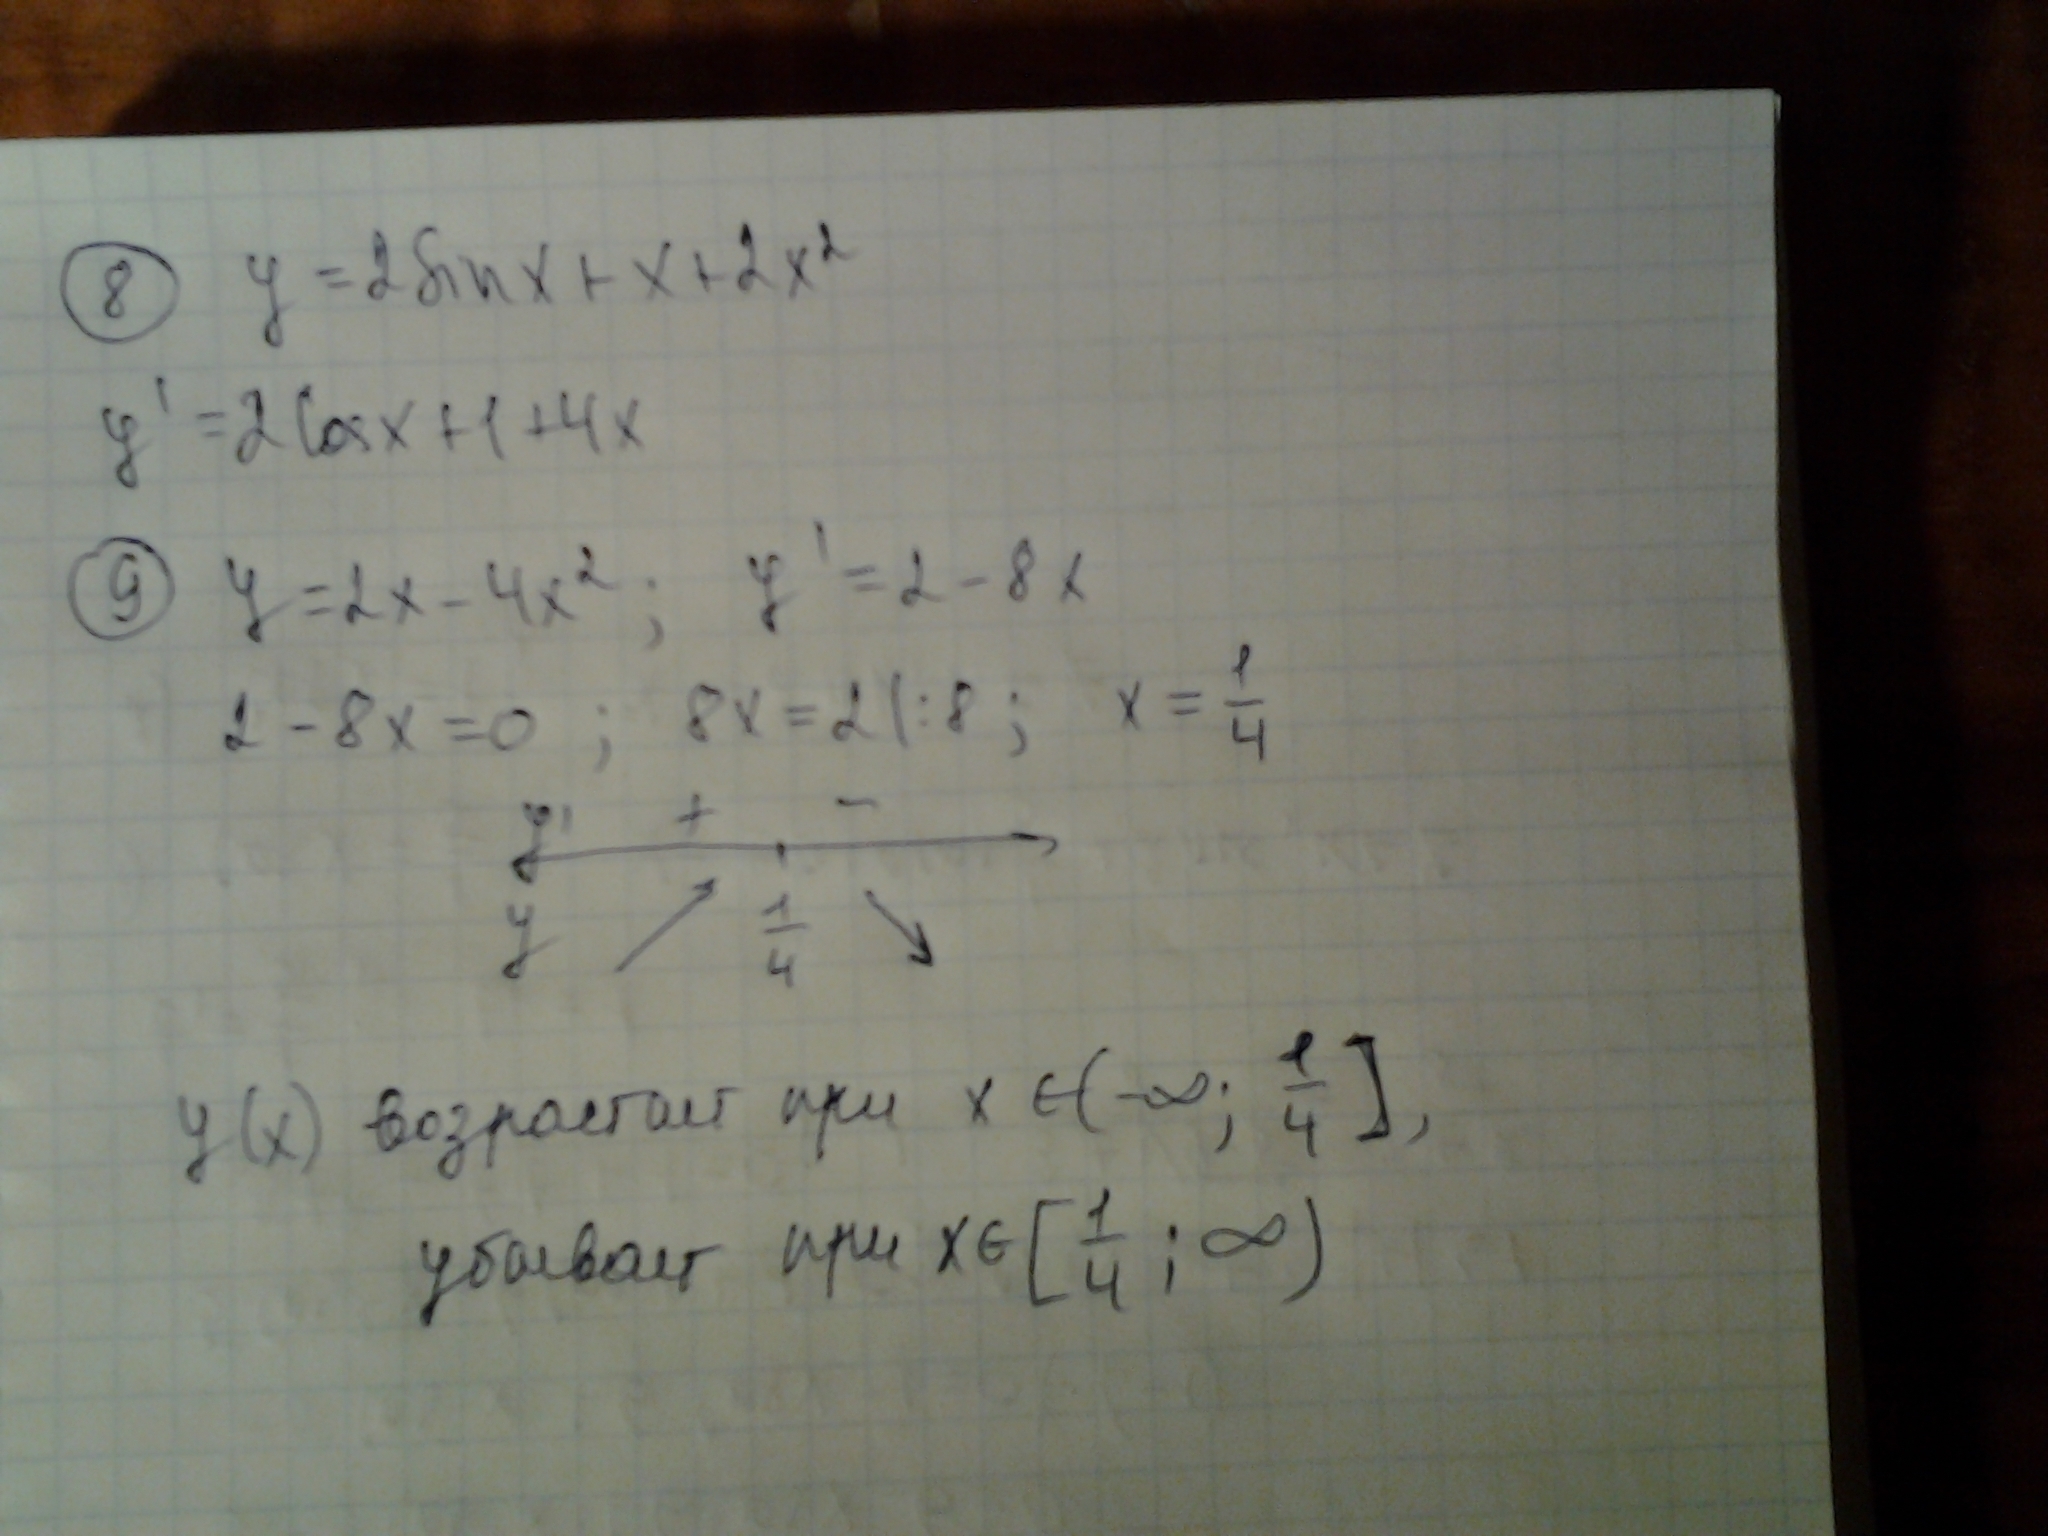 ⑧ y = 2sinx + x + 2x²
y' = 2cosx + 1 + 4x
⑨ y = 2x - 4x²; y' = 2 - 8x
2 - 8x = 0; 8x = 2 |:8; x = 1/4
y' + -
y 1/4
y(x) возрастает при x ∈ (-∞; 1/4],
убывает при x ∈ [1/4; ∞)